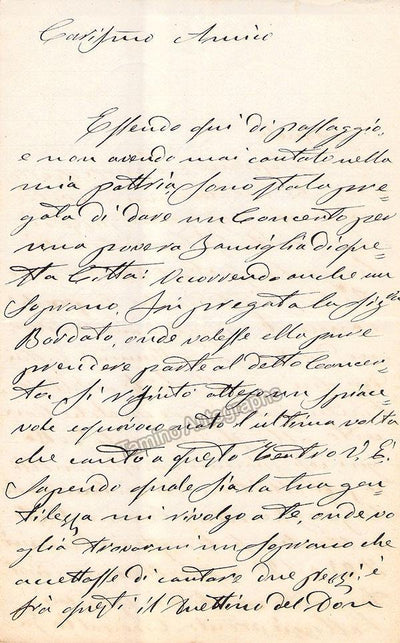 Carissimo Amico
Essendo qui di passaggio,
e non avendo mai cantato nella
mia pattria, sono stata pre=
gata di dare un Concerto per
una povera Famiglia di que=
sta Città: Occorrendo anche un
Soprano. Fu pregata la Sig.ra
Bordato, onde volesse ella pure
prendere parte al detto Concer=
to. Si rifiutò atteso un spiac=
vole equivoco nato l'ultima volta
che cantò a questo Teatro V. E.
Sapendo quale sia la tua gen=
tilezza mi rivolgo a te, onde vo=
glia trovarmi un Soprano che
accettasse di cantare due pezzi, e
fra questi il Duettino del Don
Tamino Autographs